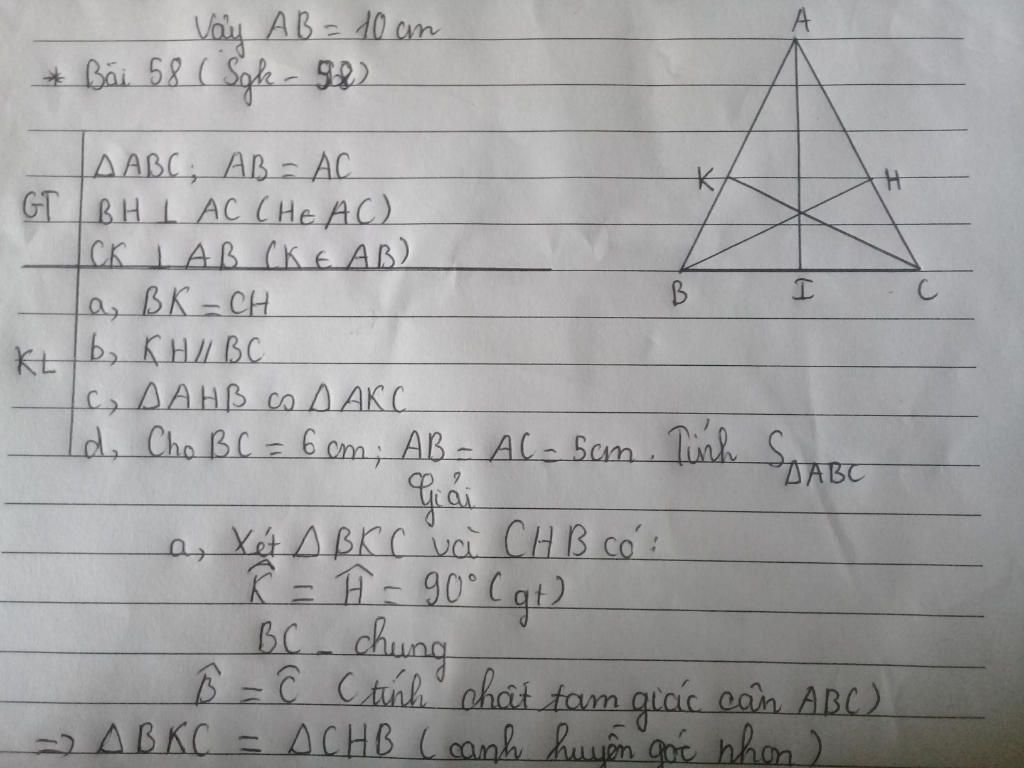 Vậy AB = 10 cm
* Bài 58 ( Sgk - 92)
GT
ΔABC; AB = AC
BH ⊥ AC (H∈ AC)
CK ⊥ AB (K ∈ AB)
KL
a, BK = CH
b, KH // BC
c, ΔAHB ∽ ΔAKC
d, Cho BC = 6 cm; AB = AC = 5cm. Tính S ΔABC
A
K
H
B
I
C
Giải
a, Xét ΔBKC và CHB có:
K̂ = Ĥ = 90° (gt)
BC - chung
B̂ = Ĉ (tính chất tam giác cân ABC)
=> ΔBKC = ΔCHB (cạnh huyền góc nhọn)